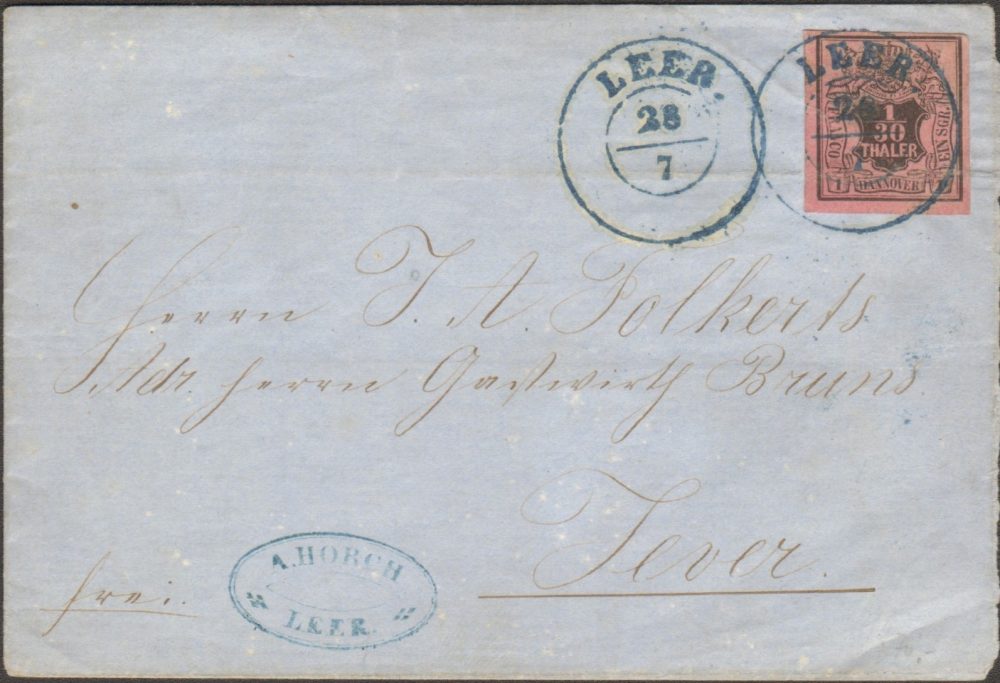 LEER.
28
7
LEER.
28
7
FRANCO
1
30
THALER
EIN SGR.
1
HANNOVER
1
Herrn J. A. Folkerts
Adr. Herrn Gastwirth Bruns
Jever.
frei.
A. HORCH
LEER.